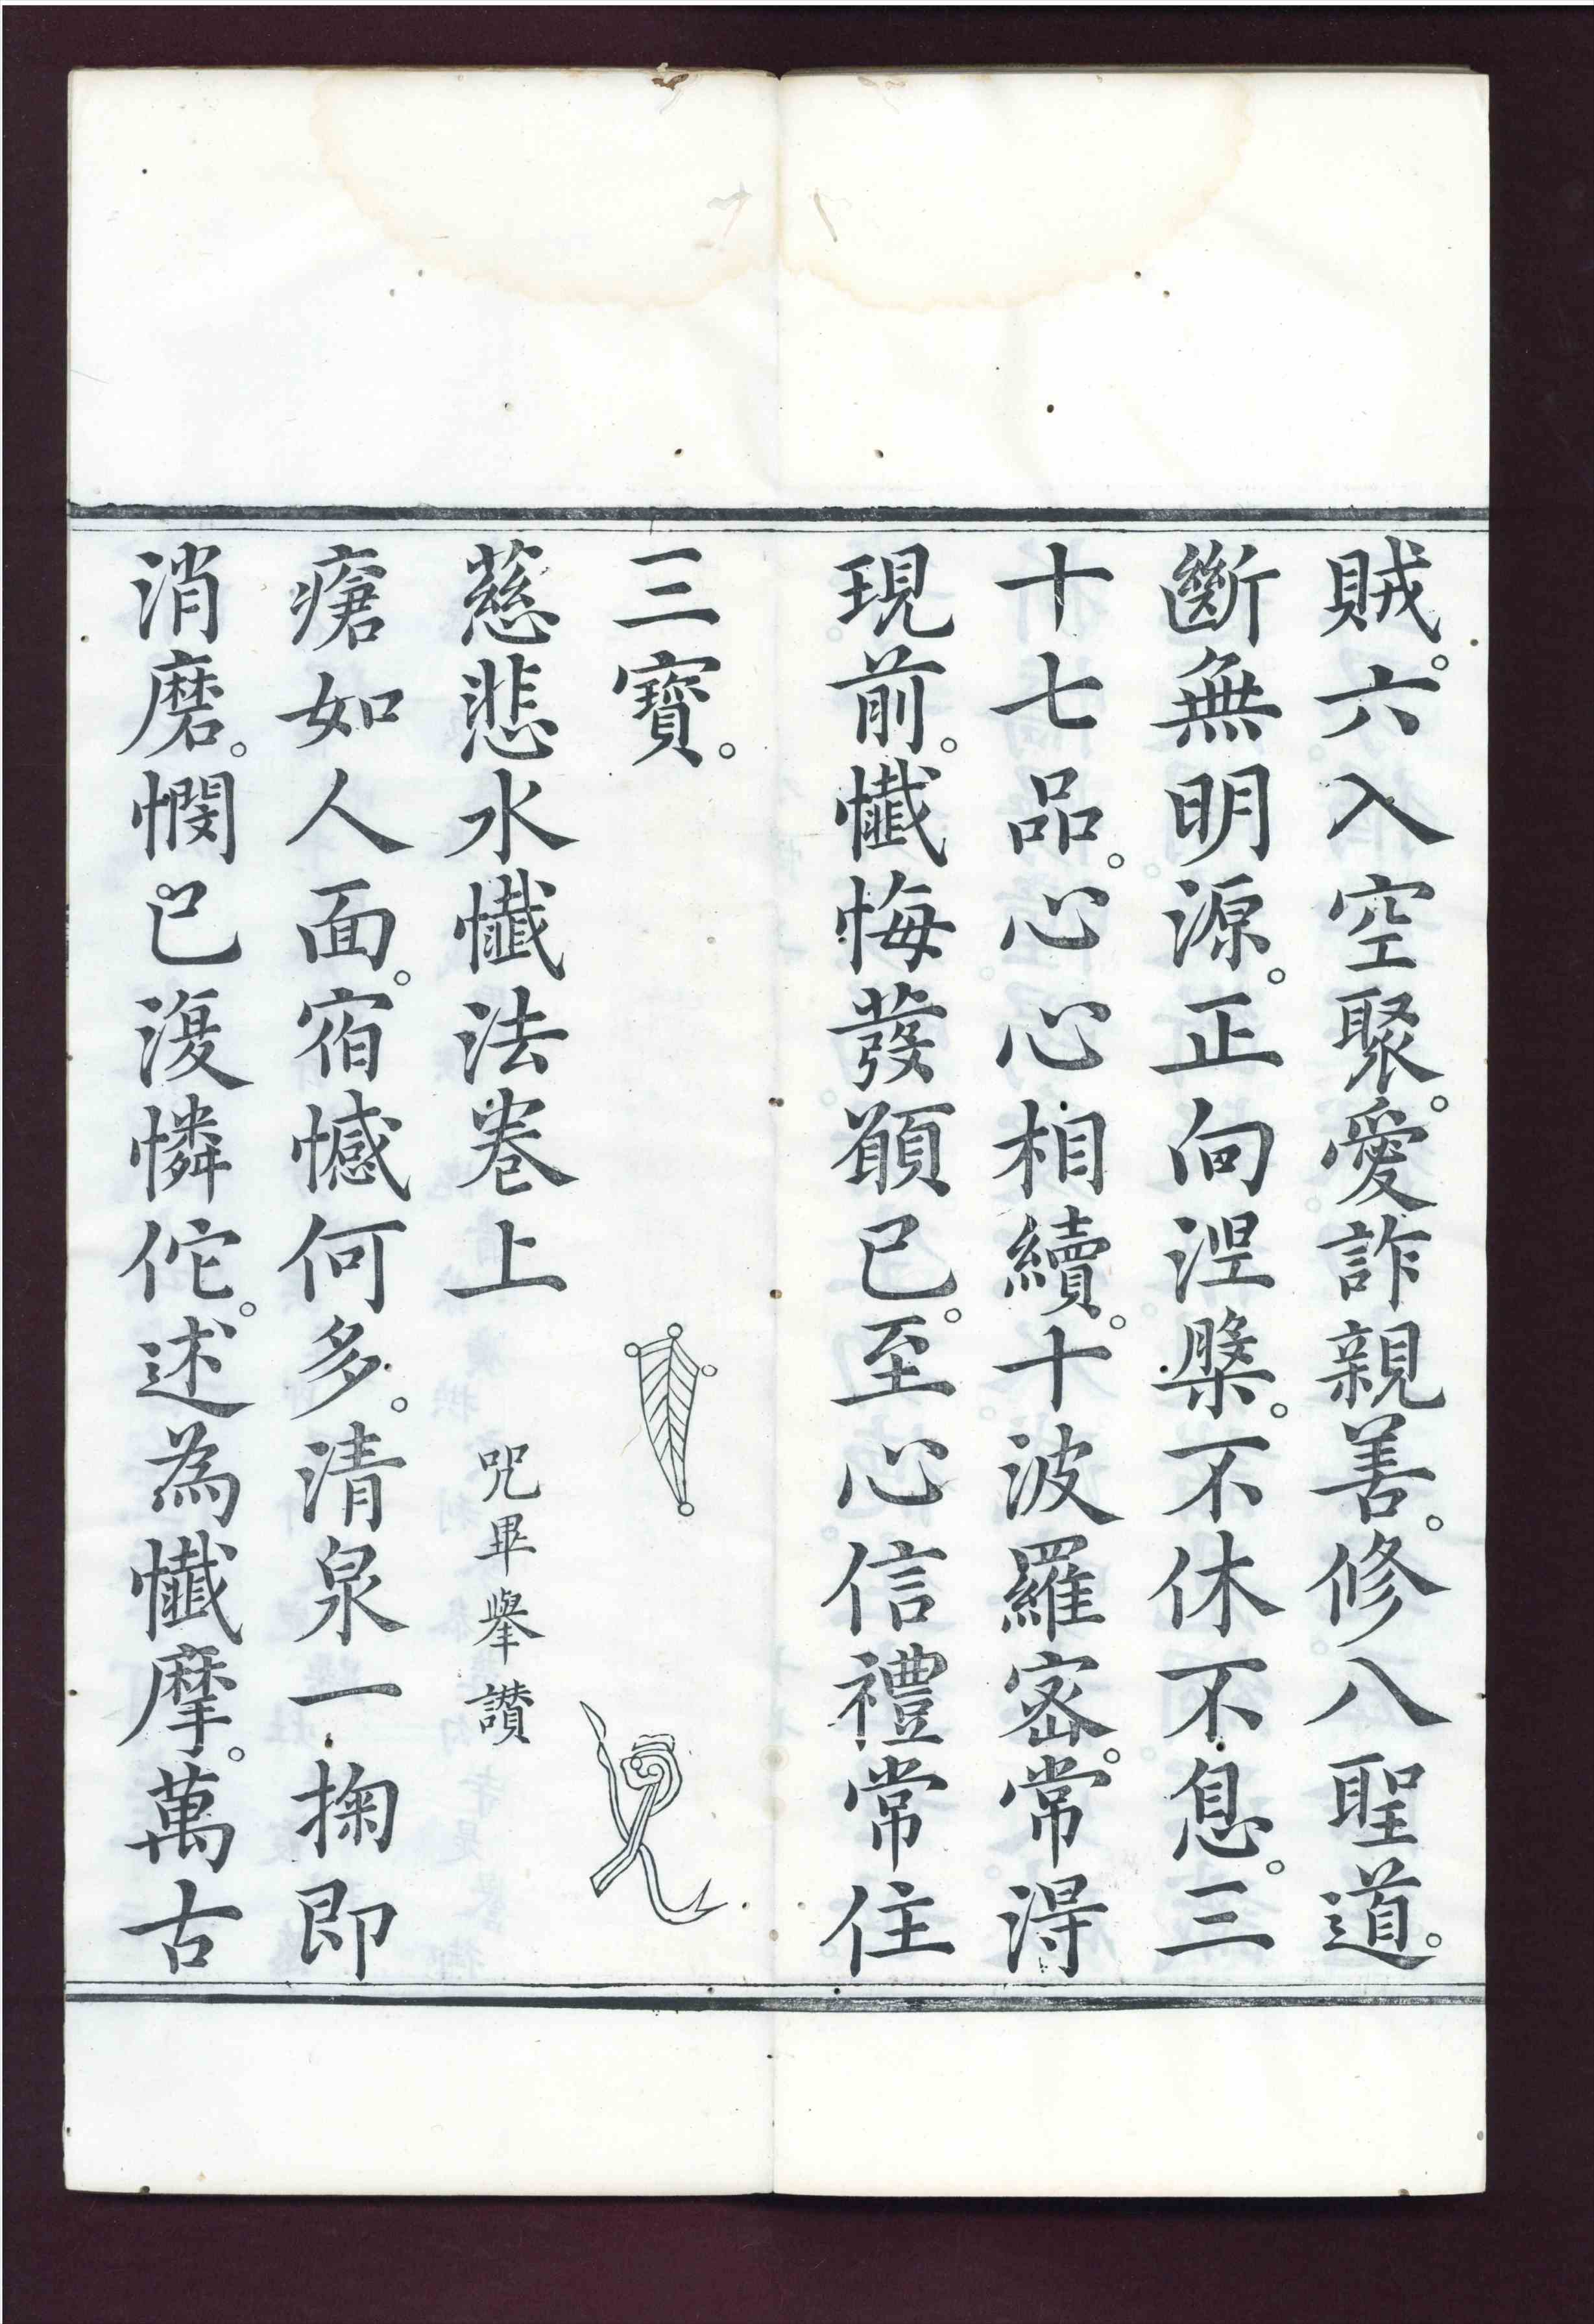 賊。六入空聚。愛詐親善。修八聖道。
斷無明源。正向涅槃。不休不息。三
十七品。心心相續。十波羅密。常得
現前。懺悔發願已。至心信禮常住
三寶。
慈悲水懺法卷上 咒畢舉讚
瘡如人面。宿憾何多。清泉一掬即
消磨。憫己復憐佗。述為懺摩。萬古